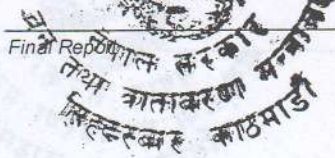 Final Report
नेपाल सरकार
वन तथा वातावरण मन्त्रालय
सिंहदरबार काठमाडौं